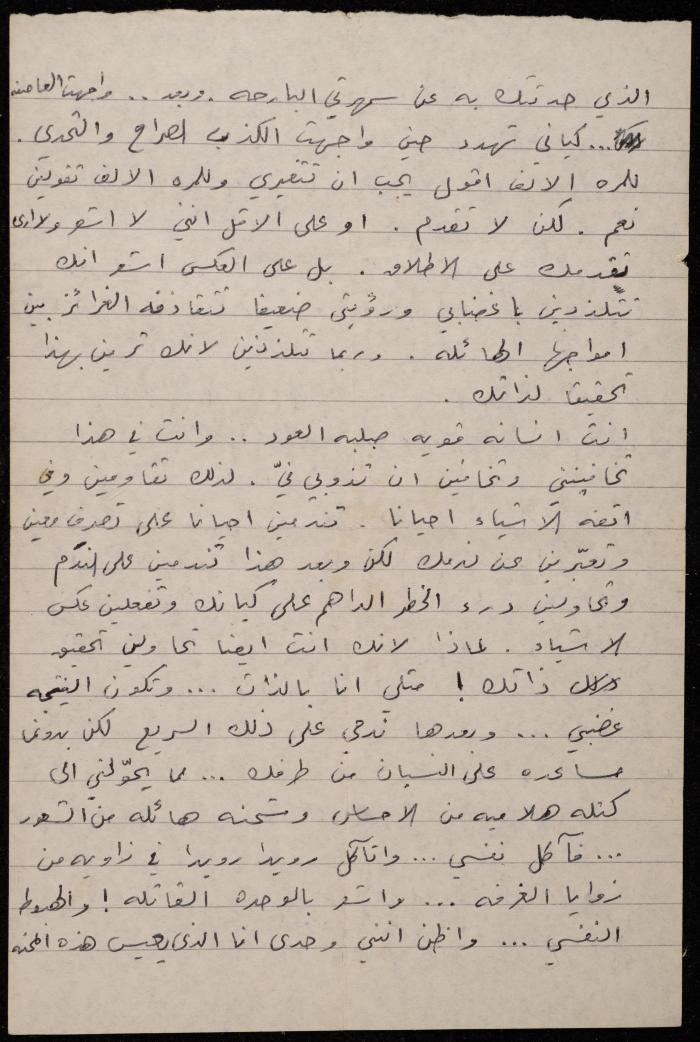 الذي حدثتك به عن سهرتي البارحه . وبعد .. واجهت العاصفه
... كياني تهدد حين واجهت الكذب الصراح والتحدي .
للمره الالف اقول يجب ان تتغيري وللمره الالف تقولين
نعم . لكن لا تقدم . او على الاقل انني لا اشعر ولا ارى
تقدمك على الاطلاق . بل على العكس اشعر انك
تتلذذين باغضابي ورؤيتي ضعيفا تتقاذفه الغرائز بين
امواجها الهائله . وربما تتلذذين لانك ترين بهذا
تحقيقا لذاتك .
انت انسانه قويه صلبه العود .. وانت في هذا
تخافينني وتخافين ان تذوبي فيّ . لذلك تقاومين وفي
اتفه الاشياء احيانا . تندمين احيانا على تصرف معين
وتعبّرين عن ندمك لكن وبعد هذا تندمين على الندم
وتحاولين درء الخطر الداهم على كيانك وتفعلين عكس
الاشياء . لماذا لانك انت ايضا تحاولين تحقيق
ذاتك ! مثلي انا بالذات ... وتكون النتيجه
غضبي ... وبعدها ندمي على ذلك السريع لكن بدونما
مساعده على النسيان من طرفك ... مما يحوّلني الى
كتله هلاميه من الاحساس وشحنه هائله من الشعور
... فآكل نفسي ... واتآكل رويدا رويدا في زاويه من
زوايا الغرفه ... واشعر بالوحده القاتله ! والهبوط
النفسي ... واظن انني وحدي انا الذي يعيش هذه المحنه